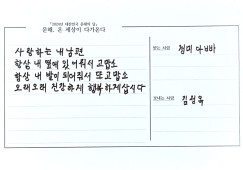 "2020년 대한민국 문해의 달,
문해, 온 세상이 다가온다
사랑하는 내남편
항상 내 곁에 있어줘서 고맙소
항상 내 발이 되어줘서 또 고맙소
오래오래 건강하게 행복하게 삽시다
받는 사람
정미 아빠
보내는 사람